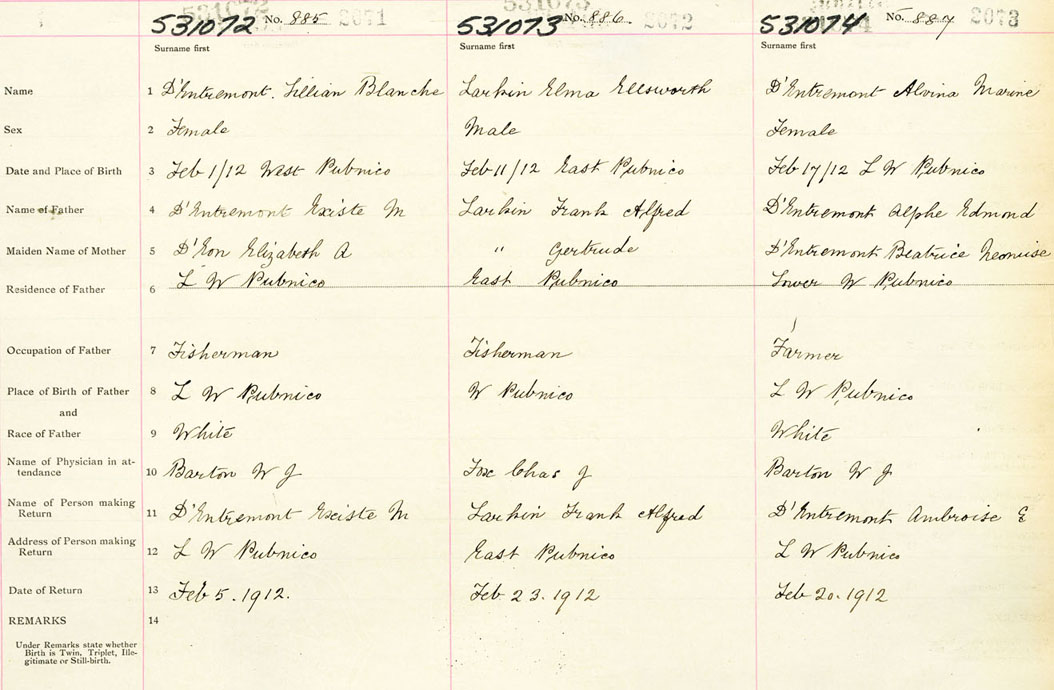 531072 No. 885 2071 531073 No. 886. 2072 531074 No. 887 2073
Surname first Surname first Surname first
Name 1 D'Entremont. Lillian Blanche Larkin Elma Ellsworth D'Entremont Alvina Marine
Sex 2 Female Male Female
Date and Place of Birth 3 Feb 1/12 West Pubnico Feb 11/12 East Pubnico Feb 17/12 L W Pubnico
Name of Father 4 D'Entremont Existe M Larkin Frank Alfred D'Entremont Alphe Edmond
Maiden Name of Mother 5 D'Eon Elizabeth A " Gertrude D'Entremont Beatrice
Residence of Father 6 L W Pubnico East Pubnico Lower W Pubnico
Occupation of Father 7 Fisherman Fisherman Farmer
Place of Birth of Father 8 L W Pubnico W Pubnico L W Pubnico
and
Race of Father 9 White White
Name of Physician in at-
tendance 10 Barton W J Fox Chas J Barton W J
Name of Person making
Return 11 D'Entremont Existe M Larkin Frank Alfred D'Entremont Ambroise E
Address of Person making
Return 12 L W Pubnico East Pubnico L W Pubnico
Date of Return 13 Feb 5. 1912. Feb 23. 1912 Feb 20. 1912
REMARKS 14
Under Remarks state whether
Birth is Twin, Triplet, Ille-
gitimate or Still-birth.